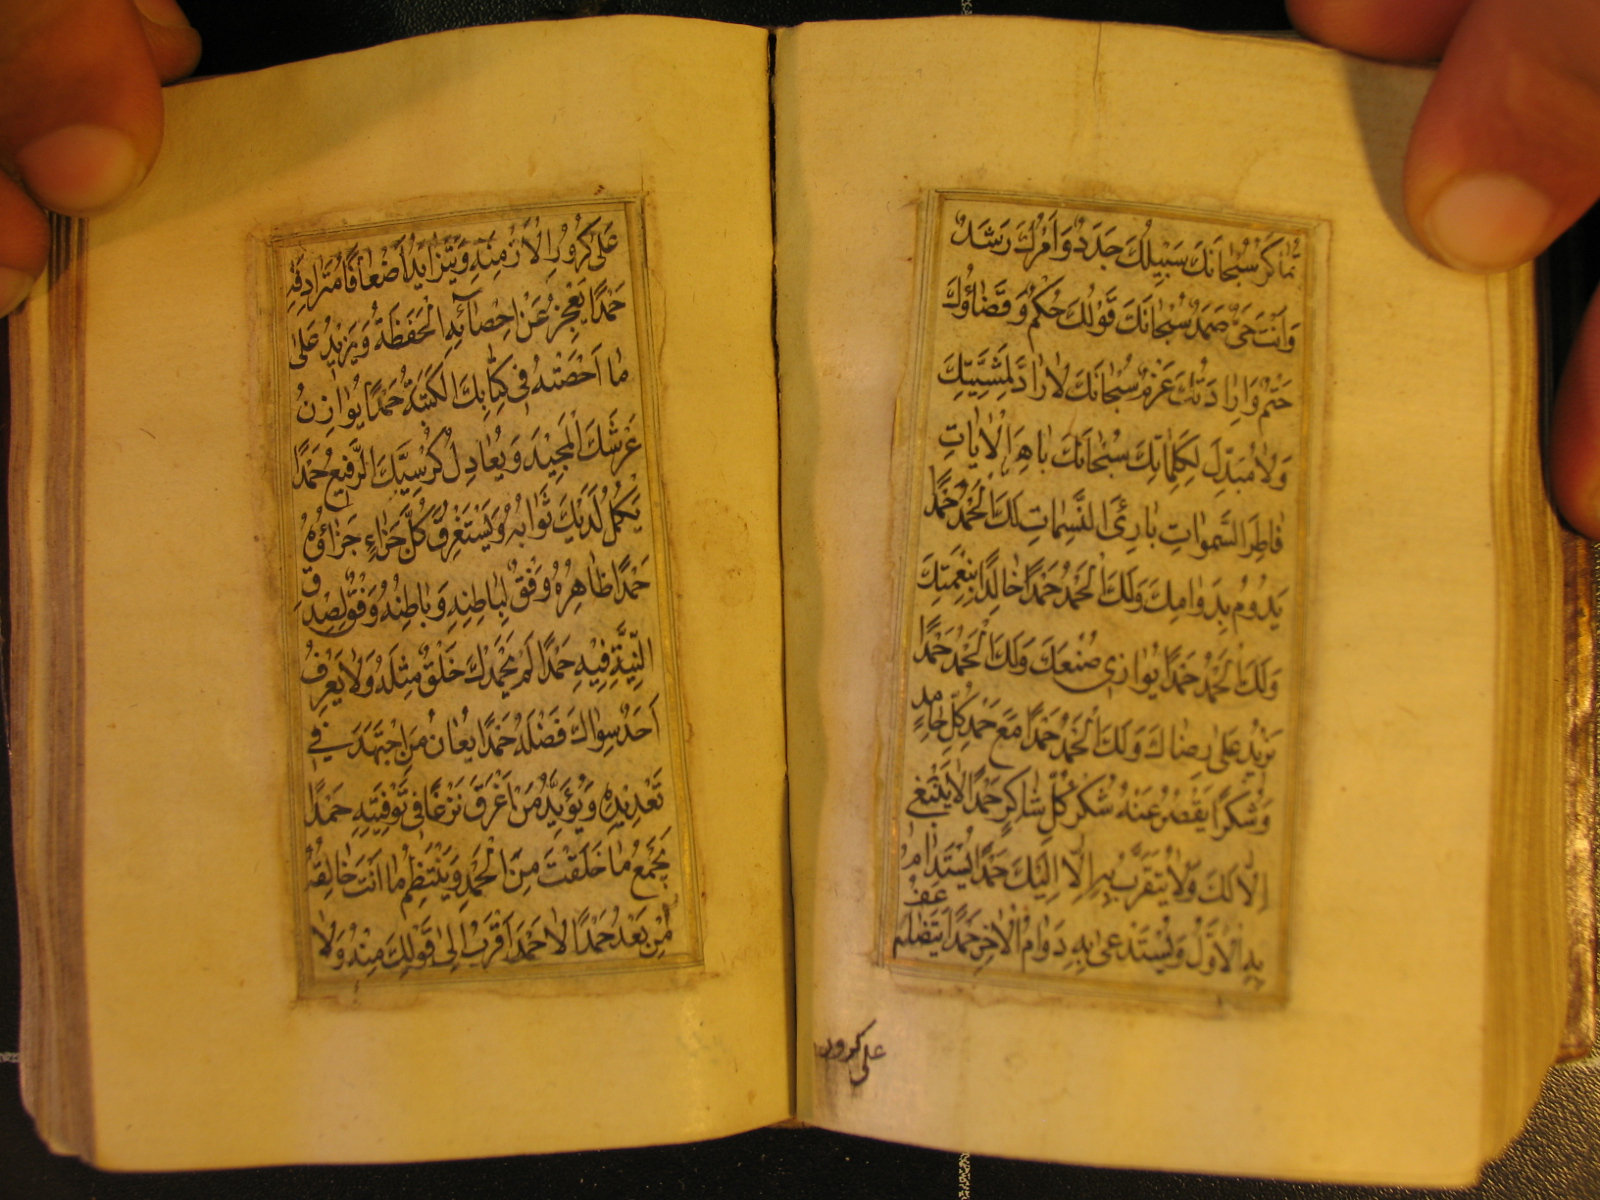 تُمَاكَرُ سُبْحَانَكَ سَبِيلُكَ جَدَدٌ وَاَمْرُكَ رَشَدٌ
وَاَنْتَ حَىٌّ صَمَدٌ سُبْحَانَكَ قَوْلُكَ حُكْمٌ وَقَضَاؤُكَ
حَتْمٌ وَاِرَادَتُكَ عَزْمٌ سُبْحَانَكَ لَا رَادَّ لِمَشِيَّتِكَ
وَلَا مُبَدِّلَ لِكَلِمَاتِكَ سُبْحَانَكَ بَاهِرَ الْاٰيَاتِ
فَاطِرَ السَّمٰوَاتِ بَارِئَ النَّسَمَاتِ لَكَ الْحَمْدُ حَمْدًا
يَدُومُ بِدَوَامِكَ وَلَكَ الْحَمْدُ حَمْدًا خَالِدًا بِنِعْمَتِكَ
وَلَكَ الْحَمْدُ حَمْدًا يُوَازِى صُنْعَكَ وَلَكَ الْحَمْدُ حَمْدًا
يَزِيدُ عَلٰى رِضَاكَ وَلَكَ الْحَمْدُ حَمْدًا مَعَ حَمْدِ كُلِّ حَامِدٍ
وَشُكْرًا يَقْصُرُ عَنْهُ شُكْرُ كُلِّ شَاكِرٍ حَمْدًا لَا يَنْبَغِى
اِلَّا لَكَ وَلَا يُتَقَرَّبُ بِهِ اِلَّا اِلَيْكَ حَمْدًا يُسْتَدَامُ
بِهِ الْاَوَّلُ وَيُسْتَدْعٰى بِهِ دَوَامُ الْاٰخِرِ حَمْدًا يَتَضَاعَفُ
عَلٰى كرور
عَلٰى كُرُورِ الْاَزْمِنَةِ وَيَتَزَايَدُ اَضْعَافًا مُتَرَادِفَةً
حَمْدًا يَعْجِزُ عَنْ اِحْصَائِهِ الْحَفَظَةُ وَيَزِيدُ عَلٰى
مَا اَحْصَتْهُ فِى كِتَابِكَ الْكَتَبَةُ حَمْدًا يُوَازِنُ
عَرْشَكَ الْمَجِيدَ وَيُعَادِلُ كُرْسِيَّكَ الرَّفِيعَ حَمْدًا
يَكْمُلُ لَدَيْكَ ثَوَابُهُ وَيَسْتَغْرِقُ كُلَّ جَزَاءٍ جَزَاؤُهُ
حَمْدًا ظَاهِرُهُ وَفْقٌ لِبَاطِنِهِ وَبَاطِنُهُ وَفْقٌ لِصِدْقِ
النِّيَّةِ فِيهِ حَمْدًا لَمْ يَحْمَدْكَ خَلْقٌ مِثْلَهُ وَلَا يَعْرِفُ
اَحَدٌ سِوَاكَ فَضْلَهُ حَمْدًا يُعَانُ مَنِ اجْتَهَدَ فِى
تَعْدِيدِهِ وَيُؤَيَّدُ مَنْ اَغْرَقَ نَزْعًا فِى تَوْفِيَتِهِ حَمْدًا
يَجْمَعُ مَا خَلَقْتَ مِنَ الْحَمْدِ وَيَنْتَظِمُ مَا اَنْتَ خَالِقُهُ
مِنْ بَعْدُ حَمْدًا لَا حَمْدَ اَقْرَبُ اِلٰى قَوْلِكَ مِنْهُ وَلَا